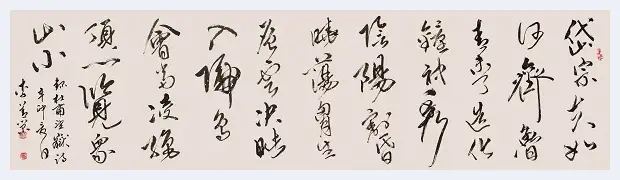 岱宗夫如
何齊魯
青未了造化
鍾神秀
陰陽割昏
曉蕩胸生
層雲決眥
入歸鳥
會當凌絕
頂一覽眾
山小
錄杜甫望嶽詩
辛卯夏日